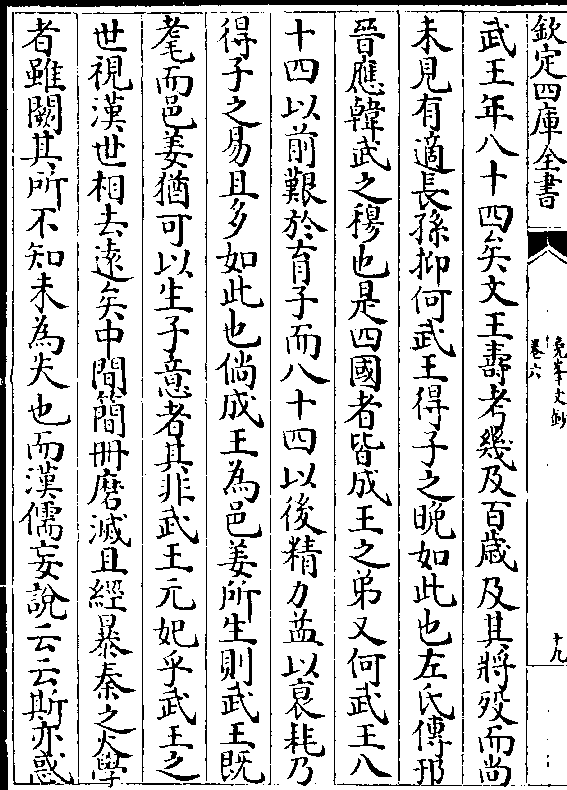 欽定四庫全書
堯峯文鈔
卷六
十九
武王年八十四矣文王壽考幾及百歳及其將歿而尚
未見有適長孫抑何武王得子之晚如此也左氏傳邘
晉應韓武之穆也是四國者皆成王之弟又何武王八
十四以前艱於育子而八十四以後精力益以衰耗乃
得子之易且多如此也倘成王為邑姜所生則武王既
耄而邑姜猶可以生子意者其非武王元妃乎武王之
世視漢世相去逺矣中間簡冊磨滅且經暴秦之火學
者雖闕其所不知未為失也而漢儒妄說云云斯亦惑